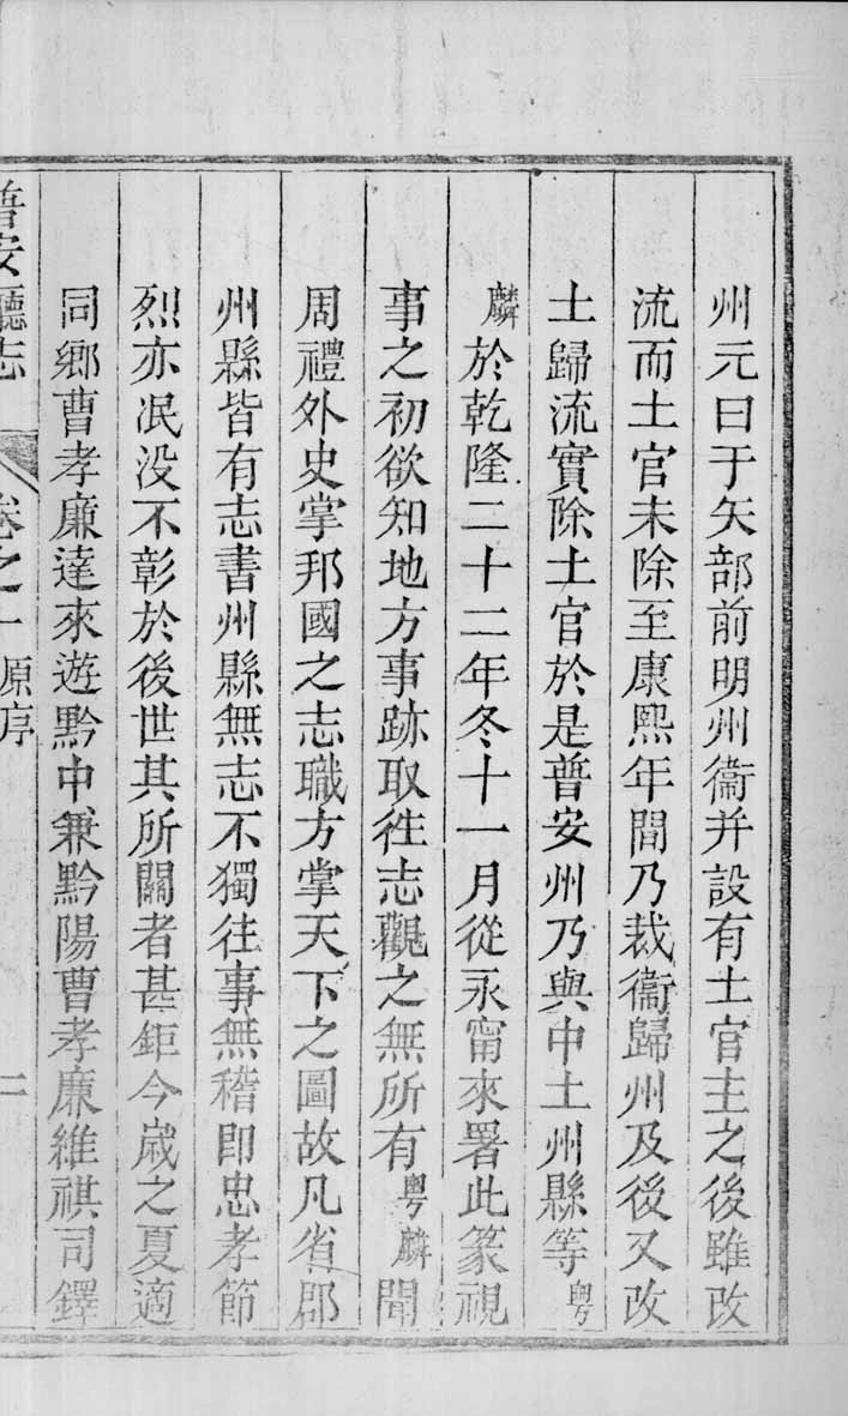 州元曰于矢部前明州衞并設有土官主之後雖改
流而土官未除至康熙年間乃裁衞歸州及後又改
土歸流實除土官於是普安州乃與中土州縣等粤
麟於乾隆二十二年冬十一月從永甯來署此篆視
事之初欲知地方事跡取徃志觀之無所有粤麟聞
周禮外史掌邦國之志職方掌天下之圖故凡省郡
州縣皆有志書州縣無志不獨往事無稽即忠孝節
烈亦泯没不彰於後世其所關者甚鉅今歲之夏適
同鄉曹孝廉達來遊黔中兼黔陽曹孝廉維祺司鐸
普安廳志 卷之一 原序 二